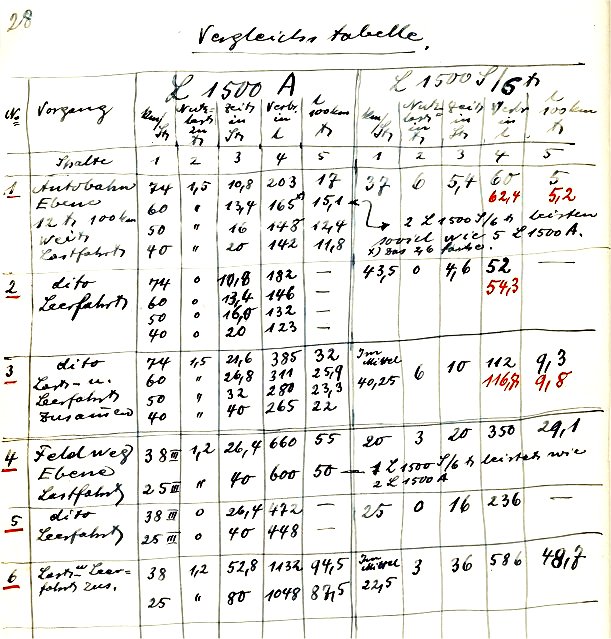 28
Vergleichstabelle.
L 1500 A L 1500 S/6 t
No Vorgang km/St Nutzlast in t Zeit in St Verbr. in l l 100 km t km/St Nutzlast in t Zeit in St Verbr in l l 100 km t
Spalte 1 2 3 4 5 1 2 3 4 5
1 Autobahn 74 1,5 10,8 203 17 37 6 5,4 60 5
62,4 5,2
Ebene 60 " 13,4 165 15,1
12 t 100 km 50 " 16 148 12,4 2 L 1500 S/6 t leisten
weit 40 " 20 142 11,8 soviel wie 5 L 1500 A.
Lastfahrt x) Das 2,6 fache.
2 dito 74 0 10,8 182 — 43,5 0 4,6 52 —
Leerfahrt 60 0 13,4 146 — 54,3
50 0 16,0 132 —
40 0 20 123 —
3 dito 74 1,5 21,6 385 32 Im Mittel 6 10 112 9,3
Last- u. 60 " 26,8 311 25,9 40,25 116,7 9,8
Leerfahrt 50 " 32 280 23,3
zusammen 40 " 40 265 22
4 Feldweg 38 III 1,2 26,4 660 55 20 3 20 350 29,1
Ebene 25 III " 40 600 50 — 1 L 1500 S/6 t leistet wie
Lastfahrt 2 L 1500 A
5 dito 38 III 0 26,4 472 — 25 0 16 236 —
Leerfahrt 25 III 0 40 448 —
6 Last- u Leer- 38 1,2 52,8 1132 94,5 Im Mittel 3 36 586 48,7
fahrt zus. 25 " 80 1048 87,5 22,5